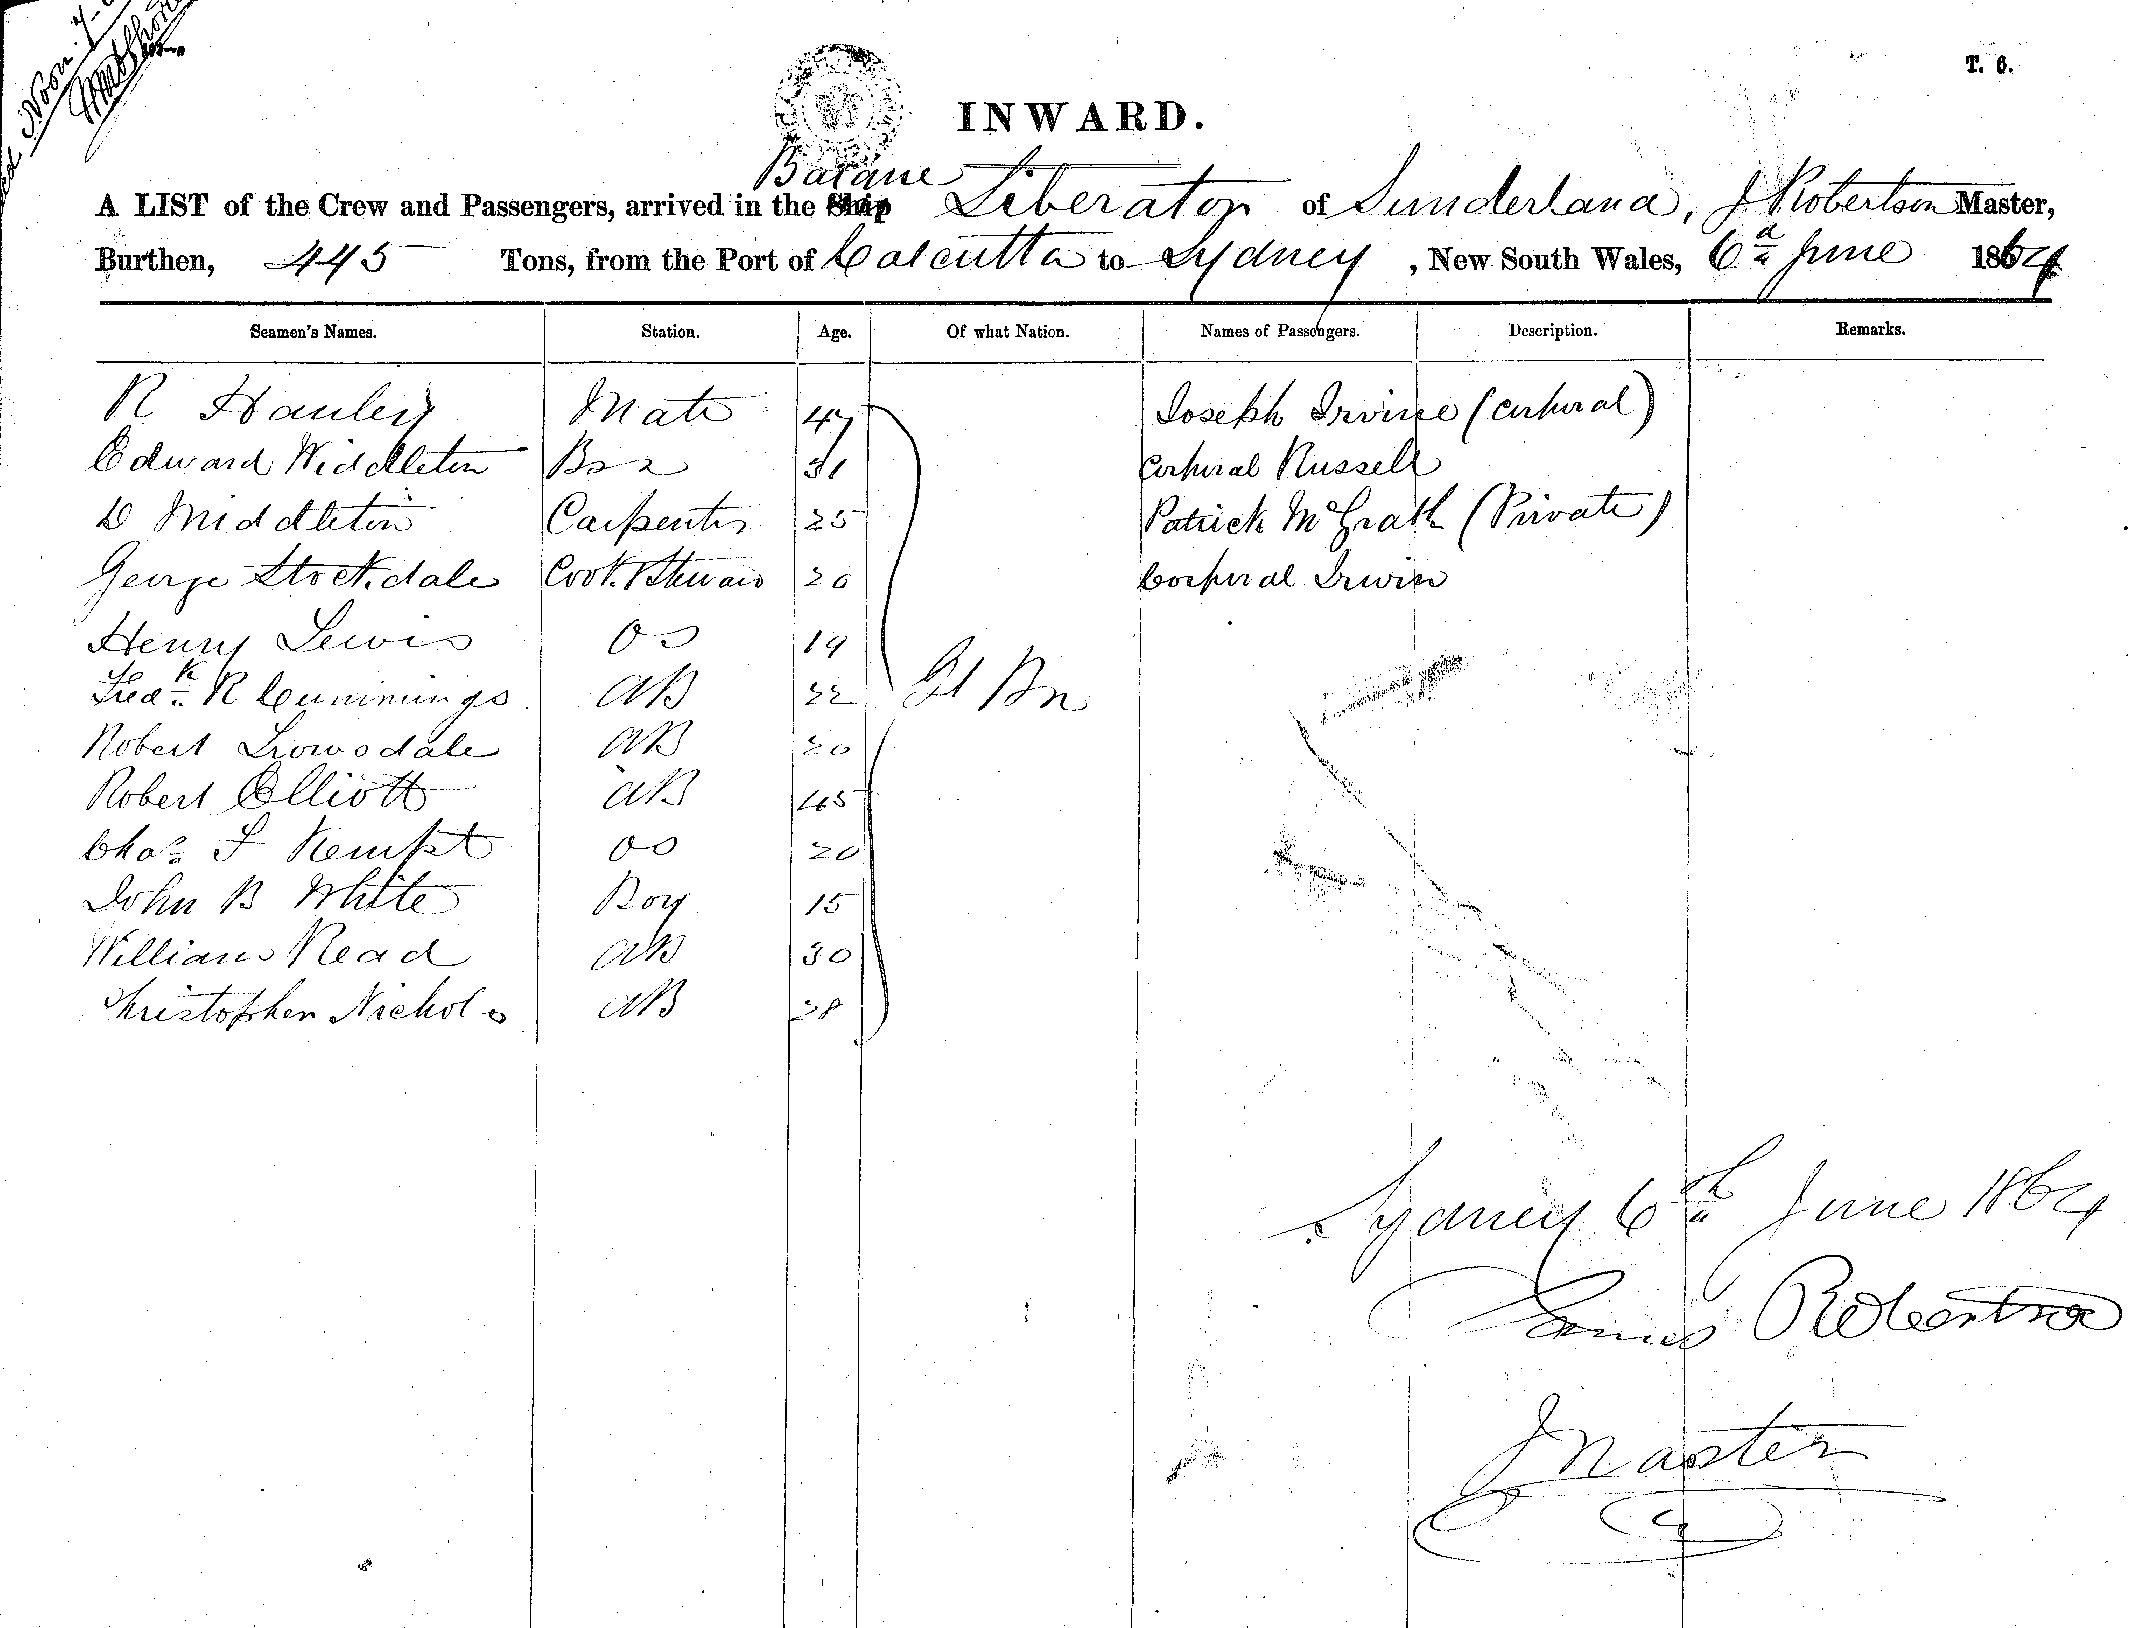 Noon 7
T. 6.
INWARD.
Barque
A LIST of the Crew and Passengers, arrived in the Ship Liberator of Sunderland, J Robertson Master,
Burthen, 445 Tons, from the Port of Calcutta to Sydney, New South Wales, 6th June 1864
Seamen's Names. Station. Age. Of what Nation. Names of Passengers. Description. Remarks.
R Hanley Mate 47 Joseph Irvine (corporal)
Edward Widdleton Bsn 31 Corporal Russell
D Middleton Carpenter 25 Patrick McGrath (Private)
George Stockdale Cook & Steward 20 Corporal Irwin
Henry Lewis OS 19
Fredk R Cummings AB 22 Gt Bn
Robert Trowsdale AB 20
Robert Elliott AB 45
Chas F Kempt OS 20
John B White Boy 15
William Read AB 30
Christopher Nichols AB 28
Sydney 6th June 1864
James Robertson
Master